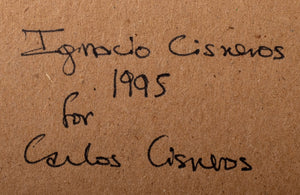 Ignacio Cisneros
1995
for
Carlos Cisneros